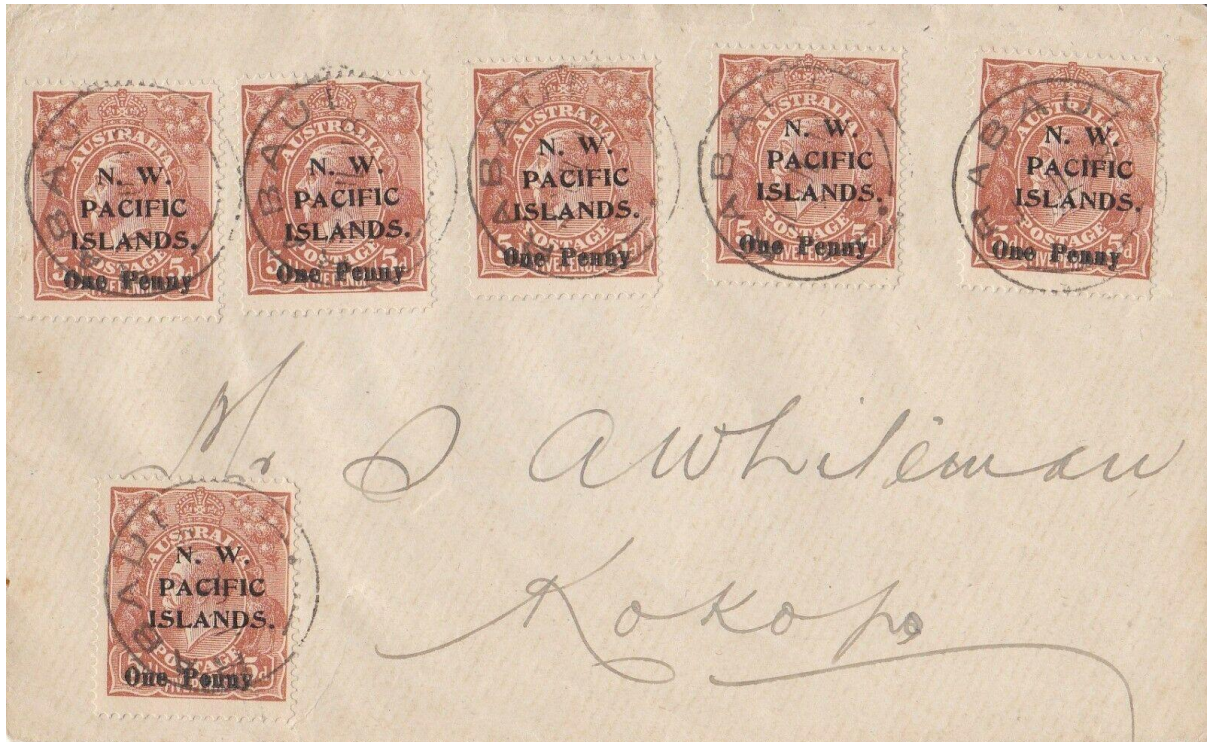 AUSTRALIA
N. W.
PACIFIC
ISLANDS.
POSTAGE
One Penny
5d
RABAUL
AUSTRALIA
N. W.
PACIFIC
ISLANDS.
POSTAGE
One Penny
5d
RABAUL
AUSTRALIA
N. W.
PACIFIC
ISLANDS.
POSTAGE
One Penny
5d
FIVEPENCE
RABAUL
AUSTRALIA
N. W.
PACIFIC
ISLANDS.
POSTAGE
One Penny
5d
FIVEPENCE
RABAUL
AUSTRALIA
N. W.
PACIFIC
ISLANDS.
POSTAGE
One Penny
5d
FIVEPENCE
RABAUL
Mr S A Whiteman
Kokopo
AUSTRALIA
N. W.
PACIFIC
ISLANDS.
POSTAGE
One Penny
5d
RABAUL